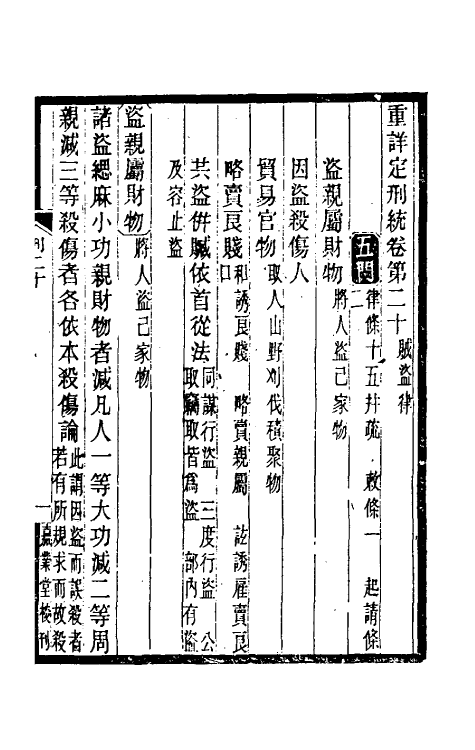 重詳定刑統卷第二十 賊盜律
五門 律條十五并疏 敕條一 起請條
二
盜親屬財物 將人盜己家物
因盜殺傷人
貿易官物 取人山野刈伐積聚物
略賣良賤 和誘良賤 略賣親屬 詃誘雇賣良
口
共盜併贓依首從法 同謀行盜 三度行盜 公
取竊取皆為盜 部內有盜
及容止盜
盜親屬財物 將人盜己家物
諸盜緦麻小功親財物者減凡人一等大功減二等周
親減三等殺傷者各依本殺傷論 此謂因盜而誤殺者
若有所規求而故殺
刑二十
一
嘉業堂校刊